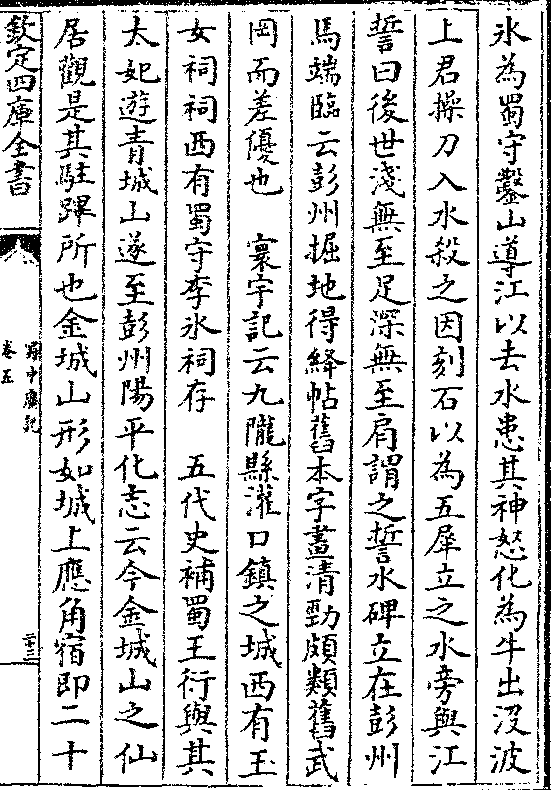 氷為蜀守鑿山導江以去水患其神怒化為牛出沒波
上君操刀入水殺之因刻石以為五犀立之水旁與江
誓曰後世淺無至足深無至肩謂之誓水碑立在彭州
馬端臨云彭州掘地得絳帖舊本字畫清勁頗類舊武
岡而差優也　寰宇記云九隴縣灌口鎮之城西有玉
女祠祠西有蜀守李氷祠存　五代史補蜀王衍與其
太妃遊青城山遂至彭州陽平化志云今金城山之仙
居觀是其駐蹕所也金城山形如城上應角宿即二十
欽定四庫全書
蜀中廣記
卷五
二十三